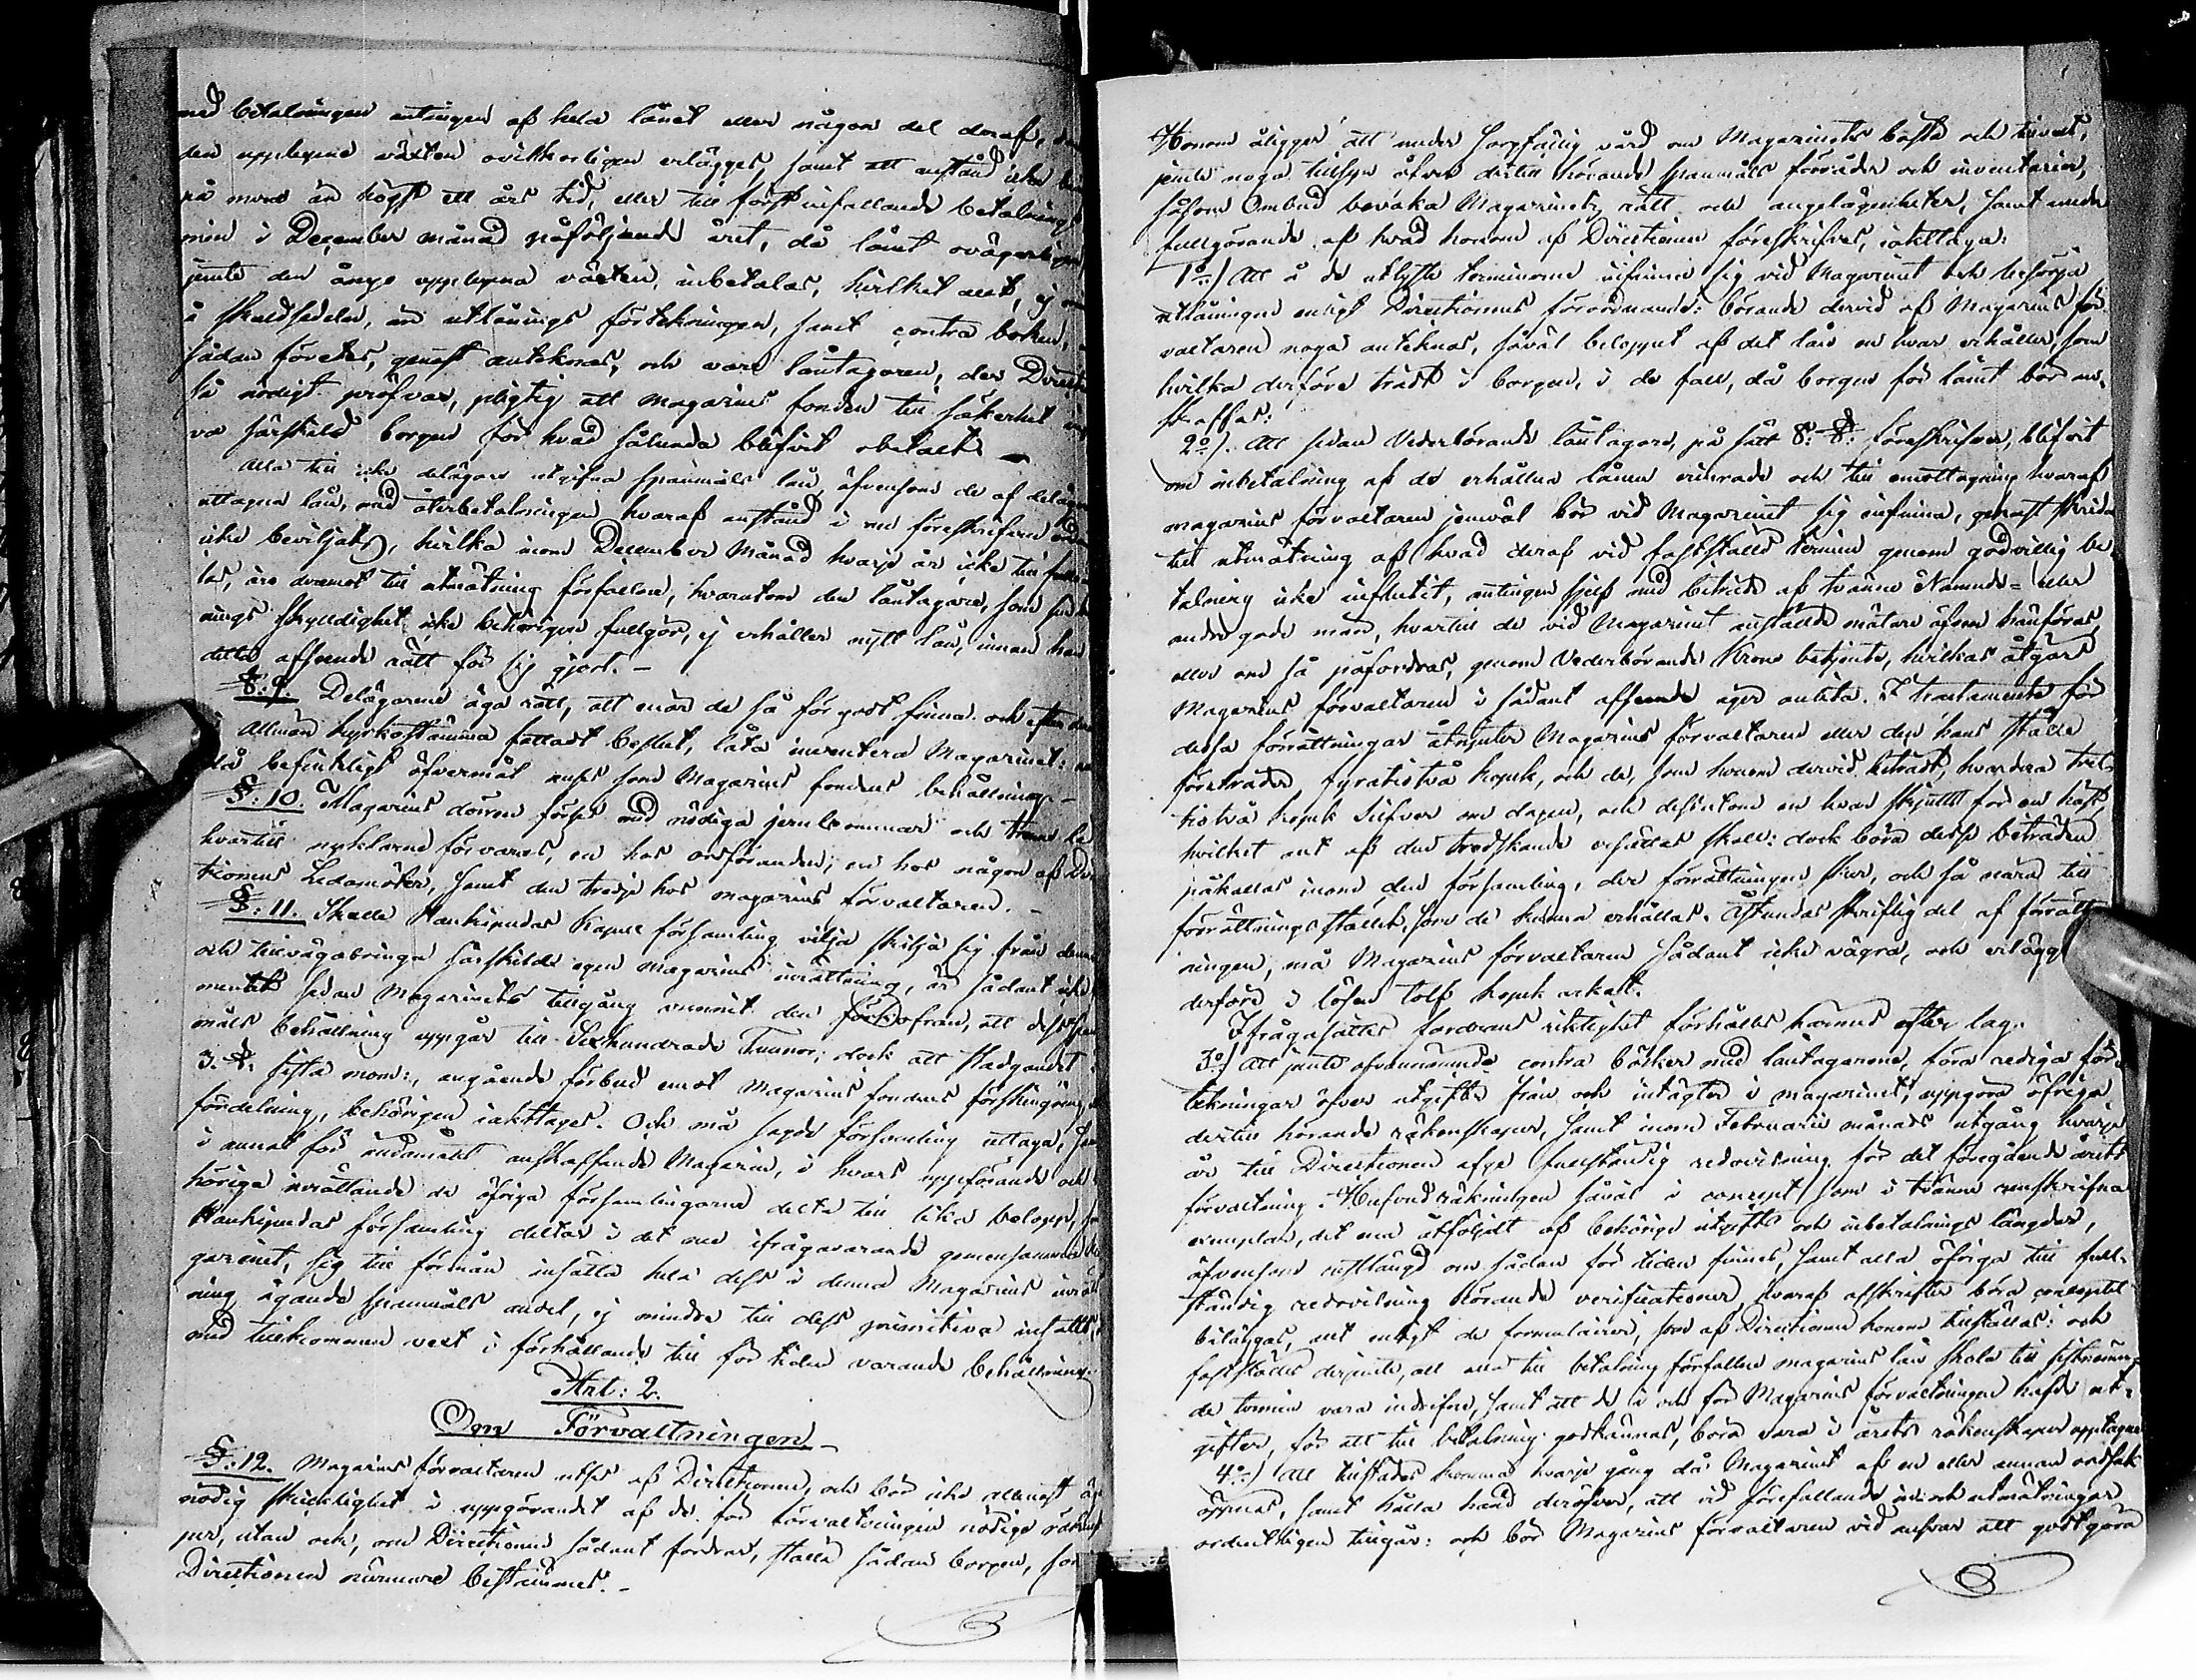 med betalningen antingen af hela lånet eller någon del deraf,
den upplupne växten ovilkorligen erlägges, samt att anstånd icke
på mera än högst ett års tid, eller till först infallande betalnings
min i December månad påföljande året, då lånet ovägerligen
jemte den ånyo upplupna växten, inbetalas, hvilket allt, ej
å skuldsedeln, än utlånings förtekningen, samt contra boken,
sådan företes, genast anteknas, och vare låntagaren, der Directi
så nödigt pröfvar, pligtig att magazins fonden till säkerhet
va särskild borgen för hvad sålunda blifvit obetalt. —
Alla till icke delägare utgifna spannmåls lån, äfvensom de af delägare
uttagna lån, med återbetalningen hvaraf anstånd i nu föreskrifven ordn
icke beviljats, hvilka inom December Månad hvarje år icke till fullo
las, äro dermot till utmätning förfallne, hvarutom den låntagare, som sin
nings skyldighet icke behörigen fullgör, ej erhåller nytt lån, innan han
detta afseende rätt för sig gjort. —
§: 9. Delägarene äga rätt, att enär de så för godt finna och efter
Allmän kyrkostämma fattadt beslut, låta inventera Magazinet:
då befinteligt öfvermål anses som Magazins fondens behållning —
§: 10. Magazins dörren förses med nödiga jernbommar och trenne
hvartill nycklarne förvaras, en hos ordföranden, en hos någon af Di
tionens Ledamöter, samt den tredje hos magazins förvaltaren. —
§: 11. Skulle Kankipudas Kapell församling vilja skilja sig från denna
och tillvägabringa särskild egen magazins inrättning, är sådant icke
menadt sedan Magazinets tillgång vunnit den förkofran, att dess span
måls behållning uppgår till Sexhundrade Tunnor; dock att stadgandet
3. §: sista mom:, angående förbud emot Magazins fondens förskingring
fördelning, behörigen iakttages. Och må sagde församling uttaga,
i annat för ändamålet anskaffande Magazin, i hvars uppförande och
höriga inrättande de öfriga församlingarne delta till lika belopp,
Kankipudas församling deltar i det nu ifrågavarande gemensamma
gazinet, sig till förmån insätta hela dess i denna Magazins inrätt
ning ägande spannmåls andel, ej mindre till dess primitiva insatts
med tillkommen vext i förhållande till för tiden varande behållning.
Art: 2.
Om Förvaltningen —
§: 12. Magazins förvaltaren utses af Directionen, och bör icke allenast
nödig skicklighet i uppgörandet af de för förvaltningen nödige räkens
per, utan och, om Directionen sådant fordrar, ställa sådan borgen, som
Directionen närmare bestämmer. —
Honom åligger att under sorgfällig vård om Magazinets bästa och tillvext,
jemte noga tillsyn öfver dertill hörande spannmåls förråder och inventarier,
såsom Ombud bevaka Magazinets rätt och angelägenheter, samt under
fullgörande af hvad honom af Directionen föreskrifves, iakttaga:
1:o) Att å de utlyste terminerne infinna sig vid Magazinet och besörja
utlåningen enligt Directionens förordnande: börande dervid af Magazins för
valtaren noga anteknas, såväl beloppet af det lån en hvar erhåller, som
hvilka derföre trädt i borgen, i de fall, då borgen för lånet bör an-
skaffas:
2:o). Att sedan Vederbörande låntagare, på sätt 8: §: föreskrifver, blifvit
om inbetalning af de erhållna lånen erinrade och till emottagning hvaraf
magazins förvaltaren jemväl bör vid Magazinet sig infinna, genast skrida
till utmätning af hvad deraf vid fastställd termin genom godvillig be
talning icke influtit, antingen sjelf med biträde af tvänne Nämnde= eller
andre gode män, hvartill de vid Magazinet anställde mätare äfven hänföras,
eller om så påfordras, genom Vederbörande Krono betjente, hvilkas åtgärd
Magazins förvaltaren i sådant afseende äger anlita. I tractamente för
dessa förrättningar åtnjuter Magazins förvaltaren eller den hans ställe
företräder, fyratiotvå kopek, och de, som honom dervid biträdt, hvardera tret-
tiotvå kopek Silfver om dagen, och dessutom en hvar skjutts för en häst
hvilket allt af den tredskande ersättas skall: dock böra desse biträden
påkallas inom den församling, der förrättningen sker, och så nära till
förrättnings stället, som de kunna erhållas. Åstundas skriftlig del af förrätt
ningen, må Magazins förvaltaren sådant icke vägra, och erlägg
derföre i lösen tolf kopek arket.
Ifrågasättes fordrans riktighet förhålles härmed efter lag.
3:o) Att jemte ofvannämnde contra böcker med låntagarene, föra redige för-
tekningar öfver utgifter från och intägter i magazinet, uppgöra öfriga
dertill hörande räkenskaper, samt inom Februarii månads utgång hvarje
år till Directionen afge fullständig redovisning för det föregående årets
förvaltning. Hufvudräkningen såväl i concept som i tvänne renskrifna
exemplar, det ena åtföljdt af behörige utgifts och inbetalnings längder,
äfvensom restlängd om sådan för tiden finnes, samt alla öfriga till full-
ständig redovisning hörande verificationer, hvaraf afskrifter böra conceptet
biläggas, allt enligt de formulairer, som af Directionen honom tillställas: och
fastställes derjemte, att alla till betalning förfallna magazins lån skola till sistnämn
de termin vara indrifne, samt att de i och för Magazins förvaltningen hafde ut-
gifter, för att till betalning godkännas, böra vara i årets räkenskaper upptagne
4:o) Att tillstädes komma hvarje gång då Magazinet af en eller annan orsak
öppnas, samt hålla hand deröfver, att vid förefallande in och utmätningar
ordentligen tillgår: och bör Magazins förvaltaren vid ansvar att godtgöra